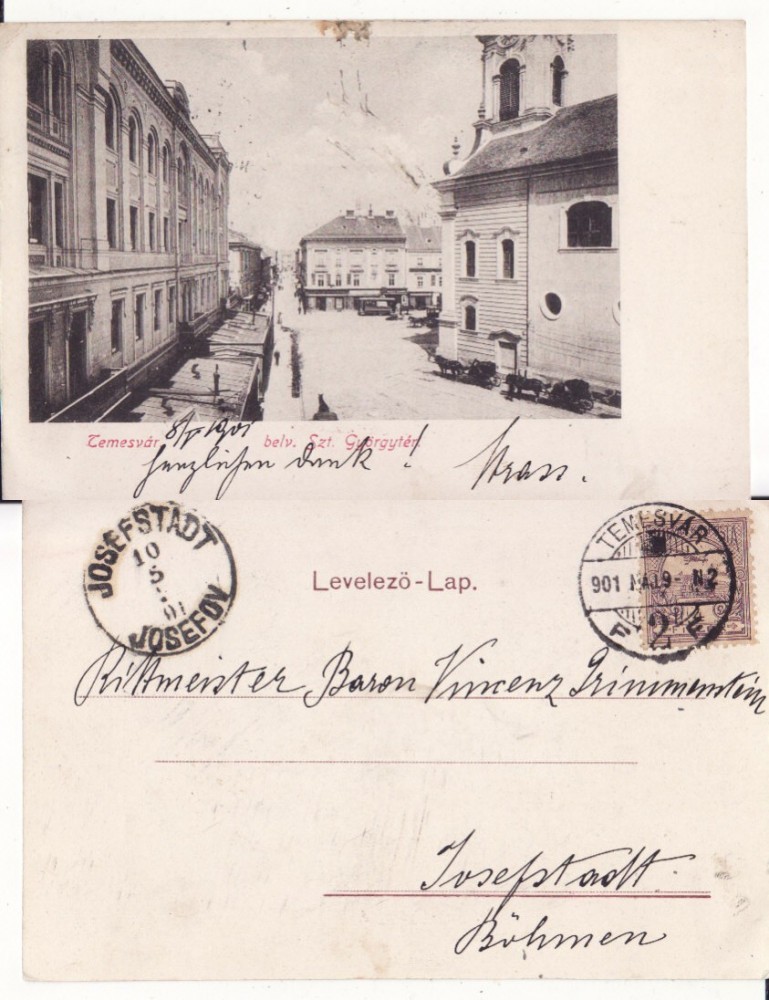 Temesvár 8/V 1901 belv. Szt. Györgytér.
herzlichen Dank! Strass.
JOSEFSTADT
10
5
01
JOSEFOV
Levelezö-Lap.
TEMESVÁR
901 MÁJ 9 - N2
2
Rittmeister Baron Vincenz Grimmenstein
Josefstadt.
Böhmen